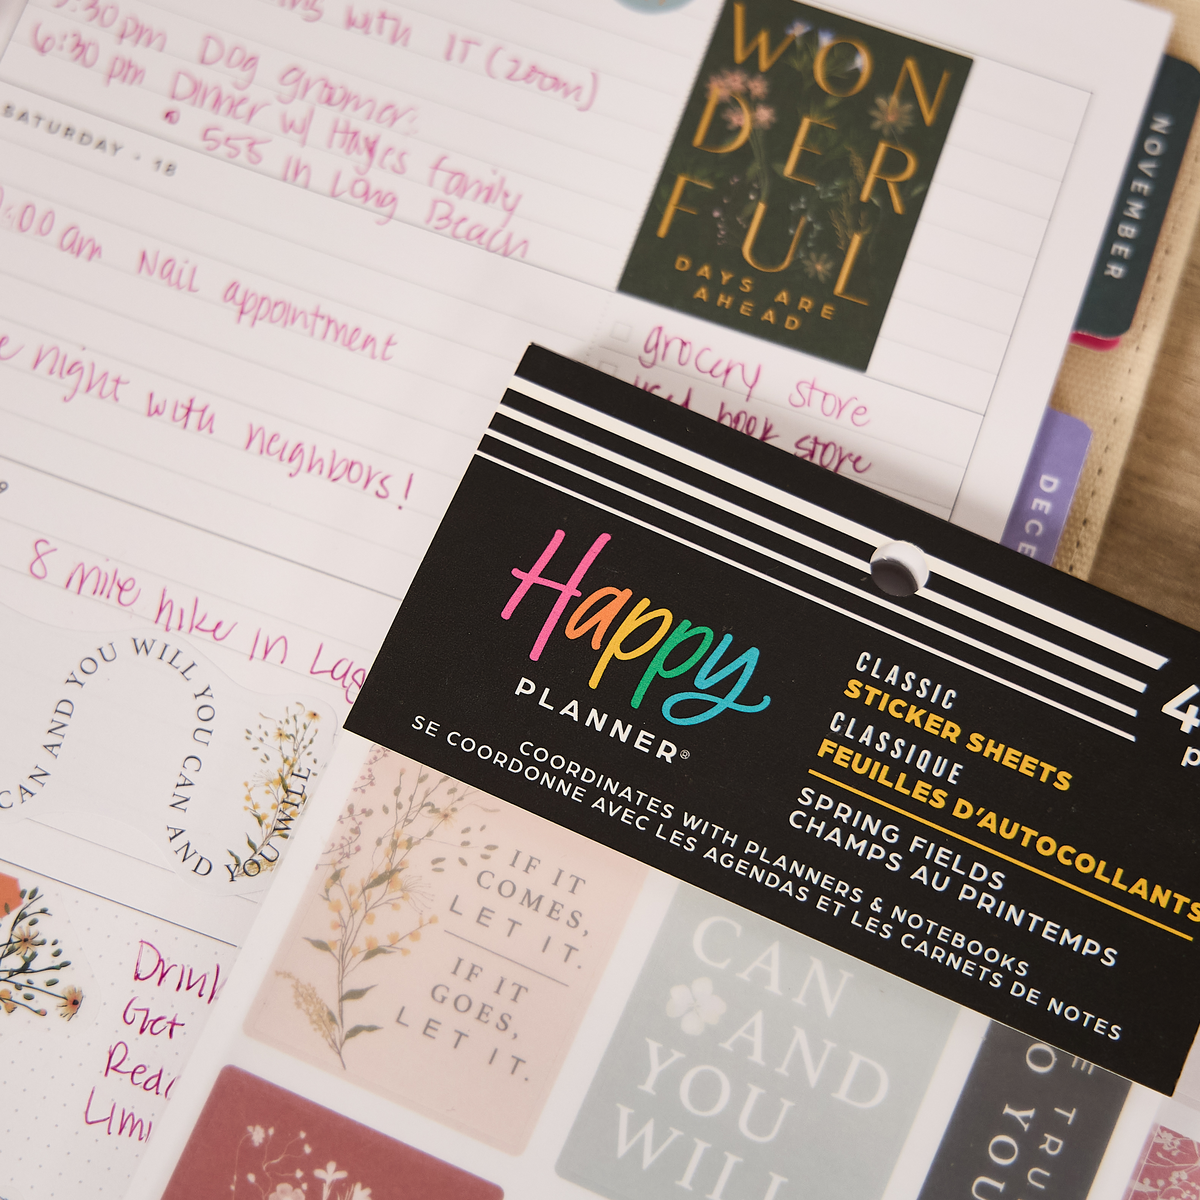 with IT (zoom)
:30 pm Dog groomer
6:30 pm Dinner w/ Hayes family
• 555 in Long
Beach
SATURDAY · 18
:00 am Nail appointment
night with neighbors!
9
8 mile hike in
CAN AND YOU WILL YOU CAN AND YOU WILL
WON
DER
FUL
DAYS ARE
AHEAD
grocery store
used book store
NOVEMBER
DECE
Get
Happy
PLANNER®
COORDINATES WITH PLANNERS & NOTEBOOKS
SE COORDONNE AVEC LES AGENDAS ET LES CARNETS DE NOTES
CLASSIC
STICKER SHEETS
CLASSIQUE
FEUILLES D'AUTOCOLLANTS
SPRING FIELDS
CHAMPS AU PRINTEMPS
4
IF IT
COMES,
LET IT.
IF IT
GOES,
LET IT.
CAN
AND
YOU
WILL
TRU
O YOU